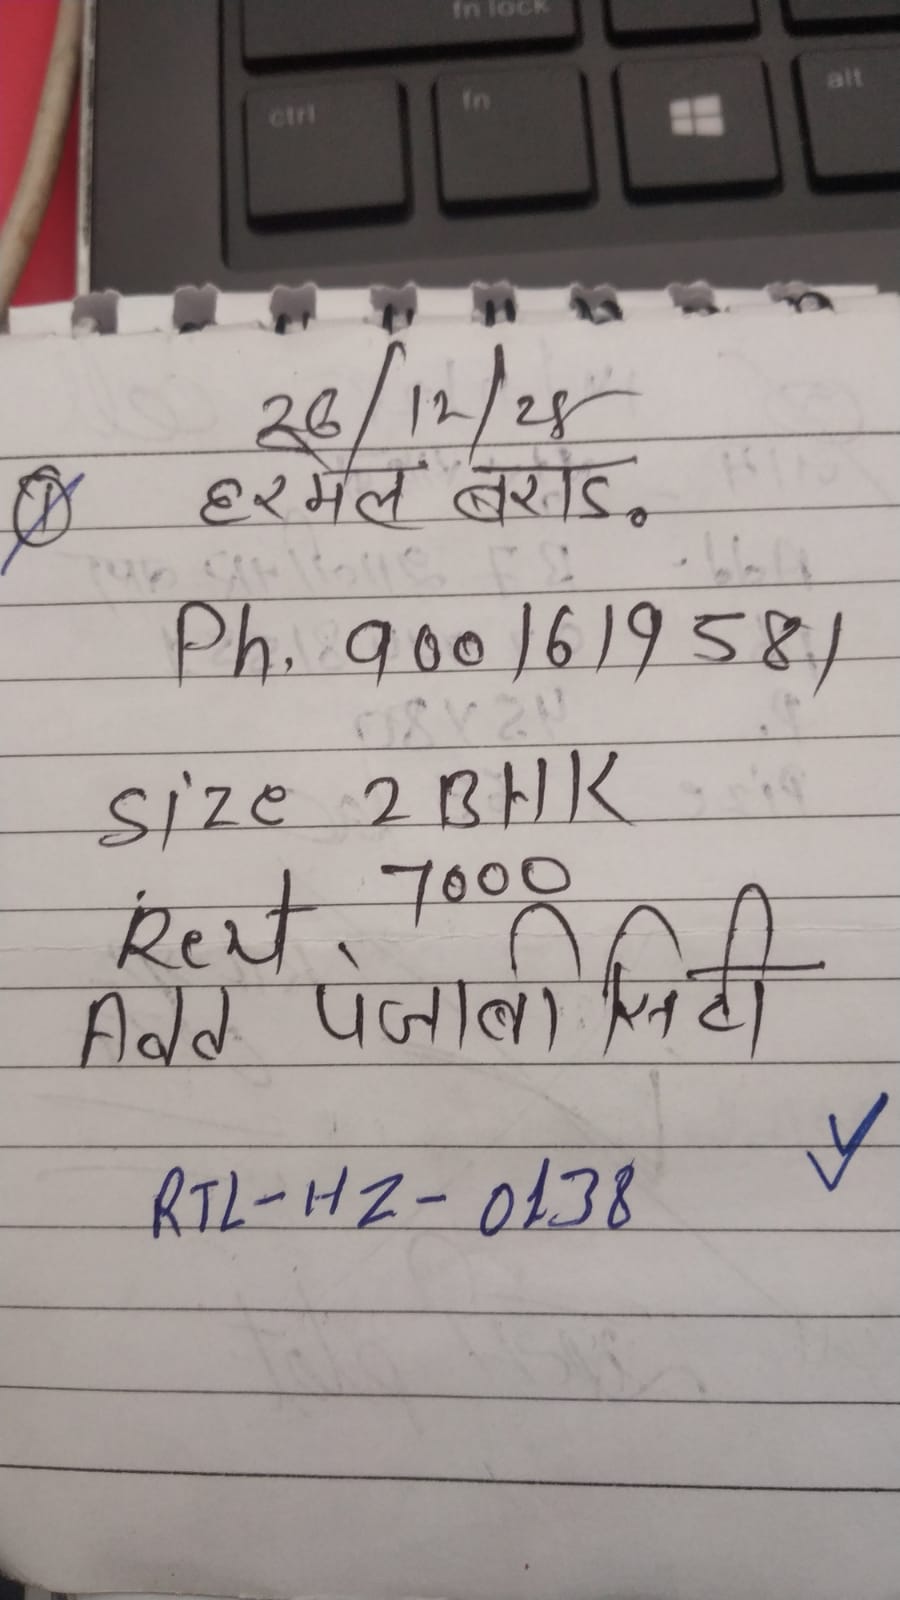 fn lock
ctrl fn alt
26/12/25
① हरमल बराड.
Ph. 9001619581
Size 2BHK
Rent. 7000
Add पंजाबी सिटी
RTL-HZ-0138